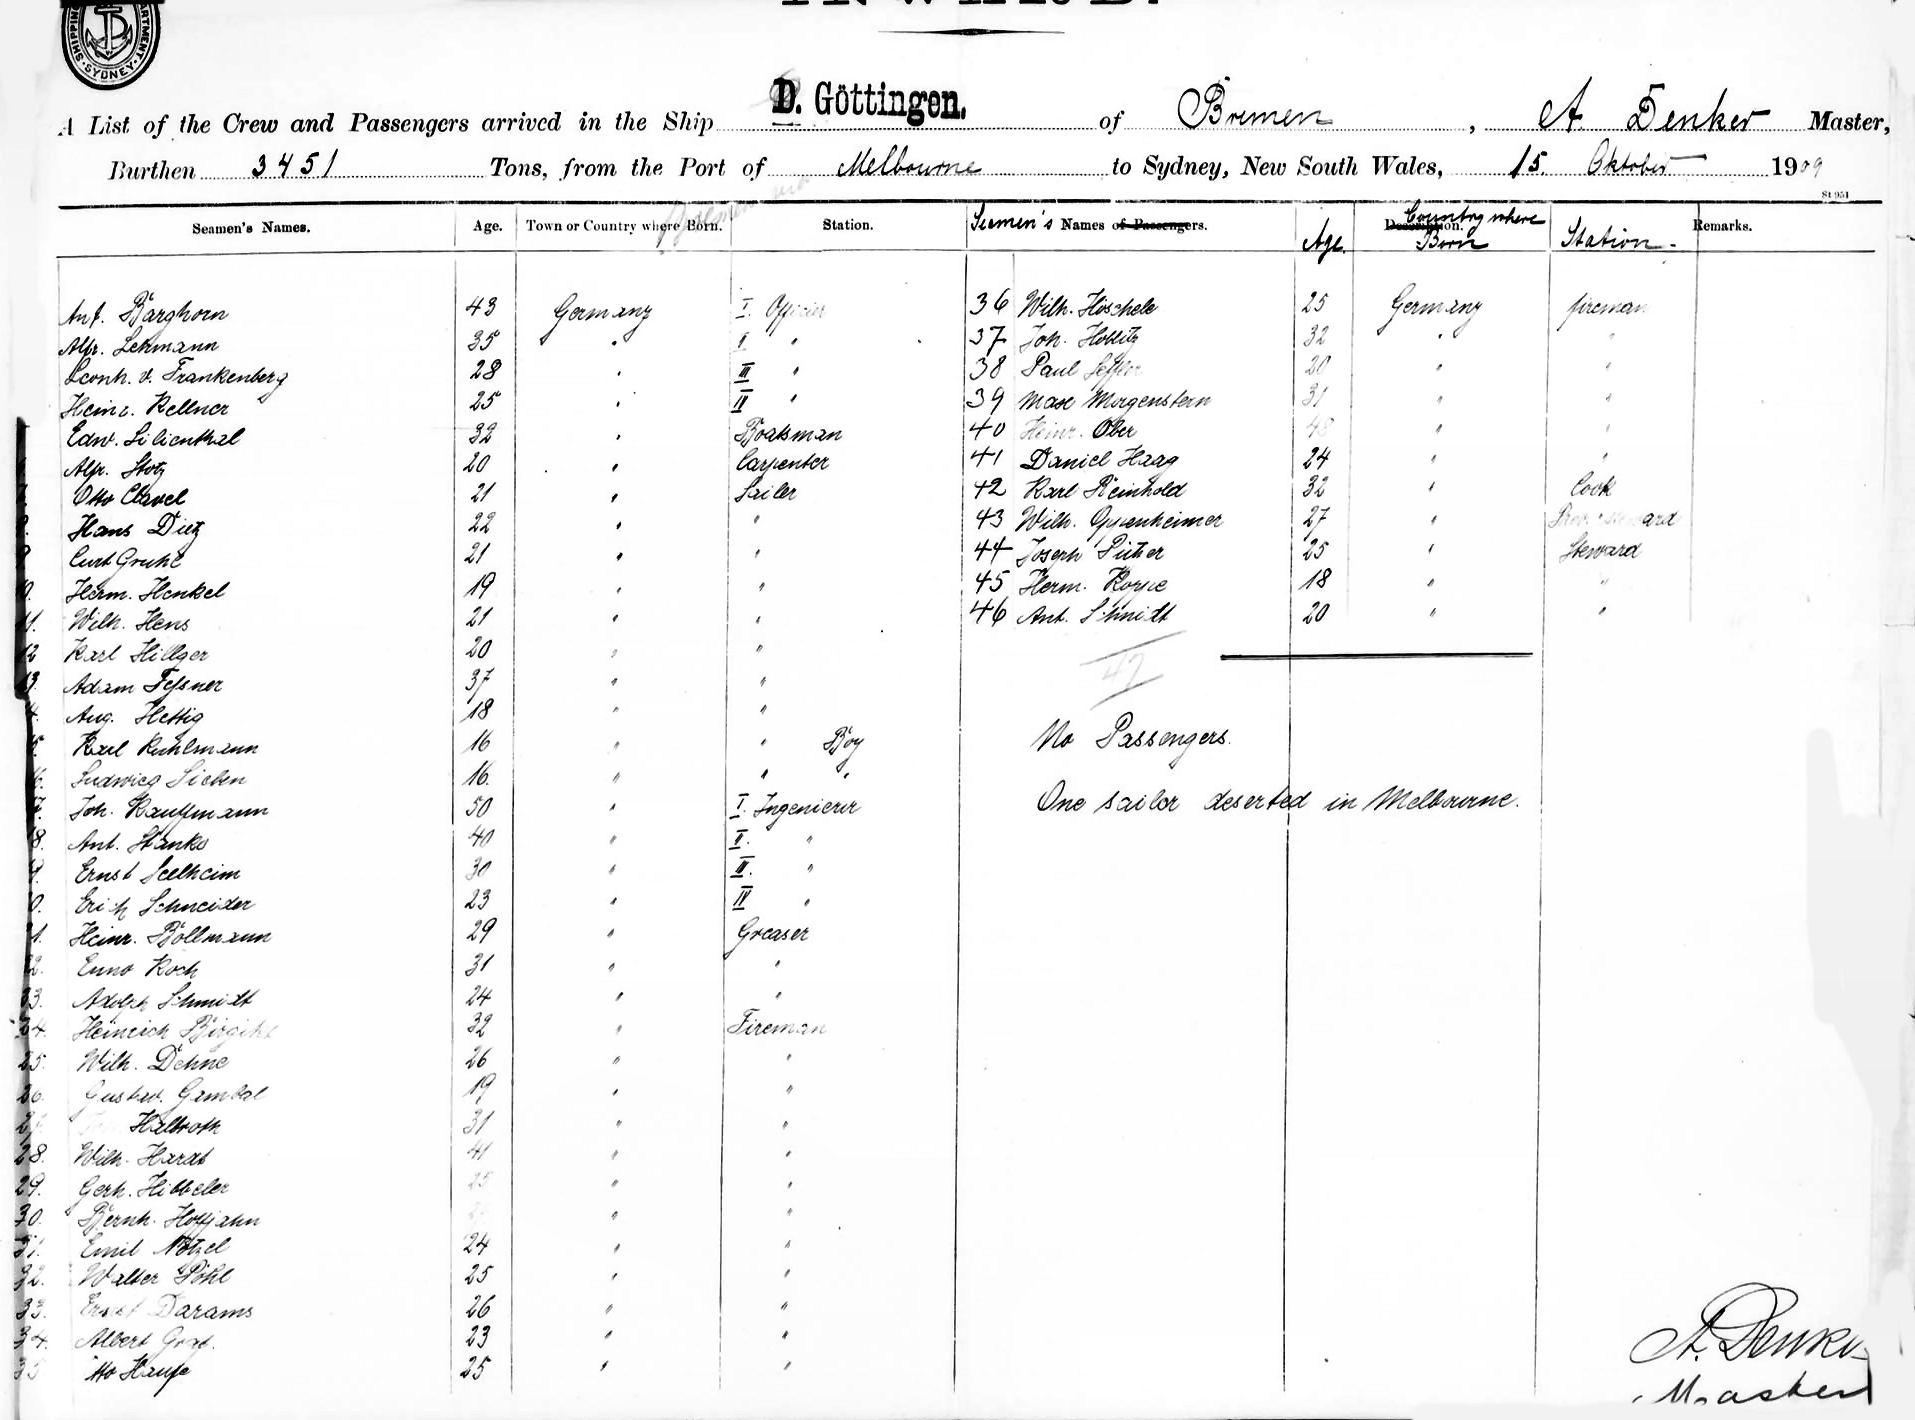 SHIPPING DEPARTMENT SYDNEY
D. Göttingen.
A List of the Crew and Passengers arrived in the Ship of Bremen, A. Denker Master,
Burthen 3451 Tons, from the Port of Melbourne to Sydney, New South Wales, 15. Oktober 1909
St 951
Seamen's Names. Age. Town or Country where Born. Station. Seamen's Names of Passengers. Age. Description. Country where Born Station. Remarks.
Ant. Barghorn 43 Germany I. Officer 36 Wilh. Höschele 25 Germany fireman
Alfr. Lehmann 35 " II " 37 Joh. Hoblitz 32 " "
Leonh. v. Frankenberg 28 " III " 38 Paul 20 " "
Heinr. Kellner 25 " IV " 39 Max Morgenstern 31 " "
Edw. Lilienthal 32 " Boatsman 40 Heinr. Ober 48 " "
Alfr. Stotz 20 " Carpenter 41 Daniel Haag 24 " "
Otto Clavel 21 " Sailer 42 Karl Reinhold 32 " Cook
8. Hans Dietz 22 " " 43 Wilh. Oppenheimer 27 "
9 Curt Gruhl 21 " " 44 Joseph Pücher 25 " Steward
10. Herm. Henkel 19 " " 45 Herm. Koppe 18 " "
11. Wilh. Hens 21 " " 46 Ant. Schmidt 20 " "
12 Karl Hillger 20 " "
47
13. Adam Fessner 37 " "
4. Aug. Hettig 18 " "
5. Karl Kuhlmann 16 " " Boy No Passengers.
6. Ludwieg Sieben 16. " " "
7. Joh. Kauffmann 50 " I. Ingenieur One sailor deserted in Melbourne.
18. Ant. Stanko 40 " II. "
9. Ernst Seelheim 30 " III. "
0. Erich Schneider 23 " IV "
21. Heinr. Böllmann 29 " Greaser
2. Enno Koch 31 " "
23. Adolph Schmidt 24 " "
24. Heinrich 32 " Fireman
25. Wilh. Dehne 26 " "
26. Gustav. Gembal 19 " "
27. Halbroth 31 " "
28. Wilh. Hardt 41 " "
29. Gerh. Hibbeler 25 " "
30. Bernh. Hoffjahn " "
31. Emil Nötzel 24 " "
32. Walter Pöhl 25 " "
33. Ernst Darams 26 " "
34. Albert Graf. 23 " "
35 Otto Haufe 25 " "
A. Denker
Master